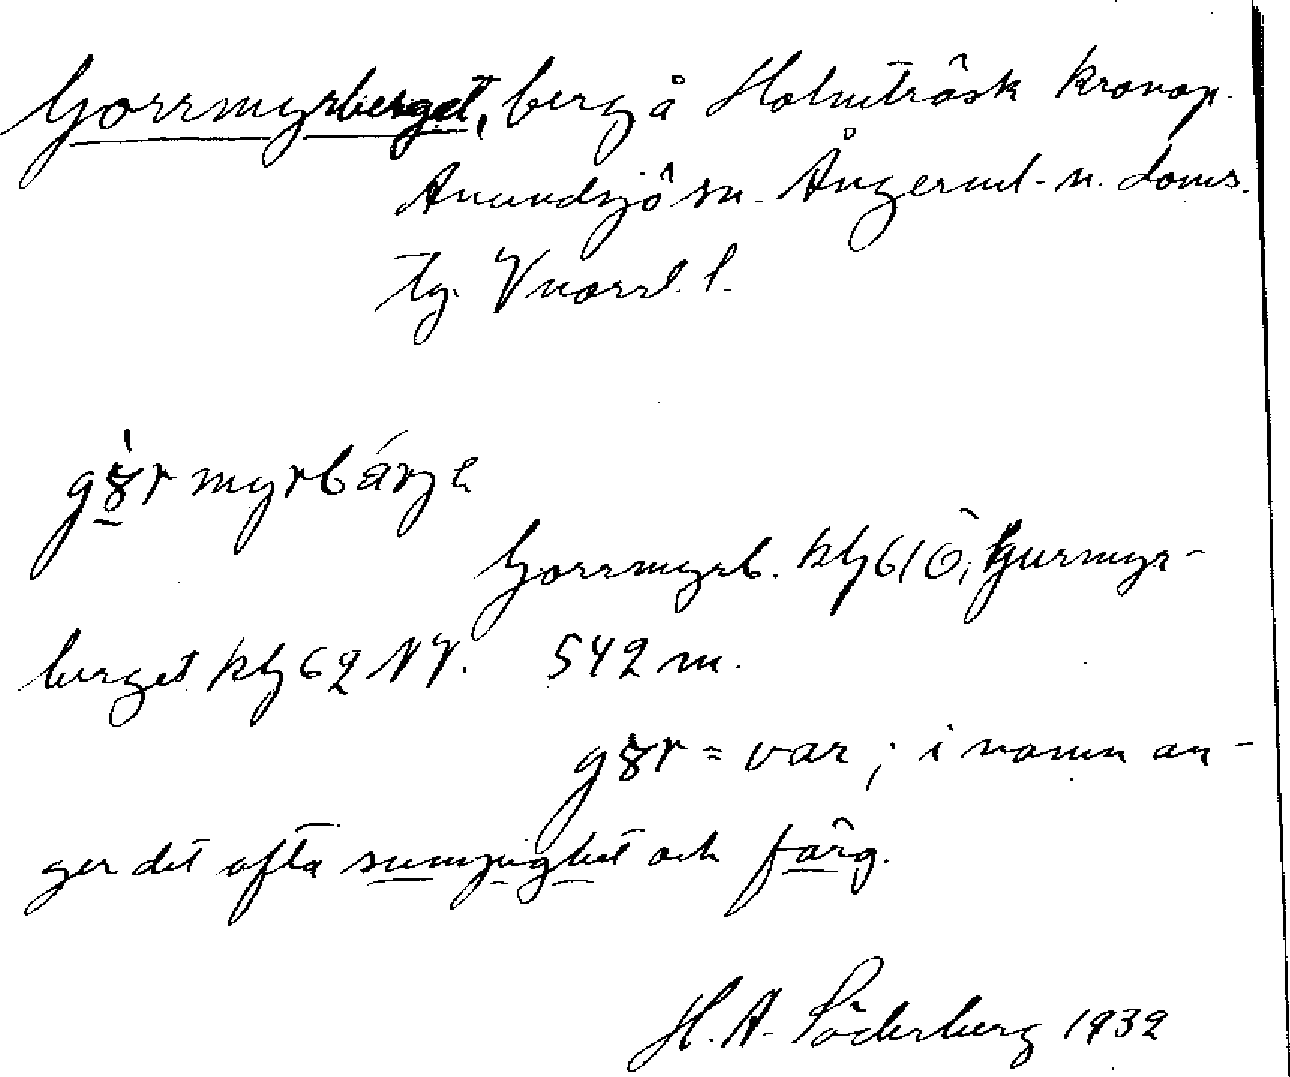 Gorrmyrberget, berg å Holmträsk kronop.
Anundsjö sn. Ångerml. n. doms.
tg. Vnorrl. l.
Gorrmyrb. kbl 61 Ö; Gurmyr-
berget kbl 62 NV. 542 m.
= var; i namn an-
ger det ofta sumpighet och färg.
H. A. Söderberg 1932